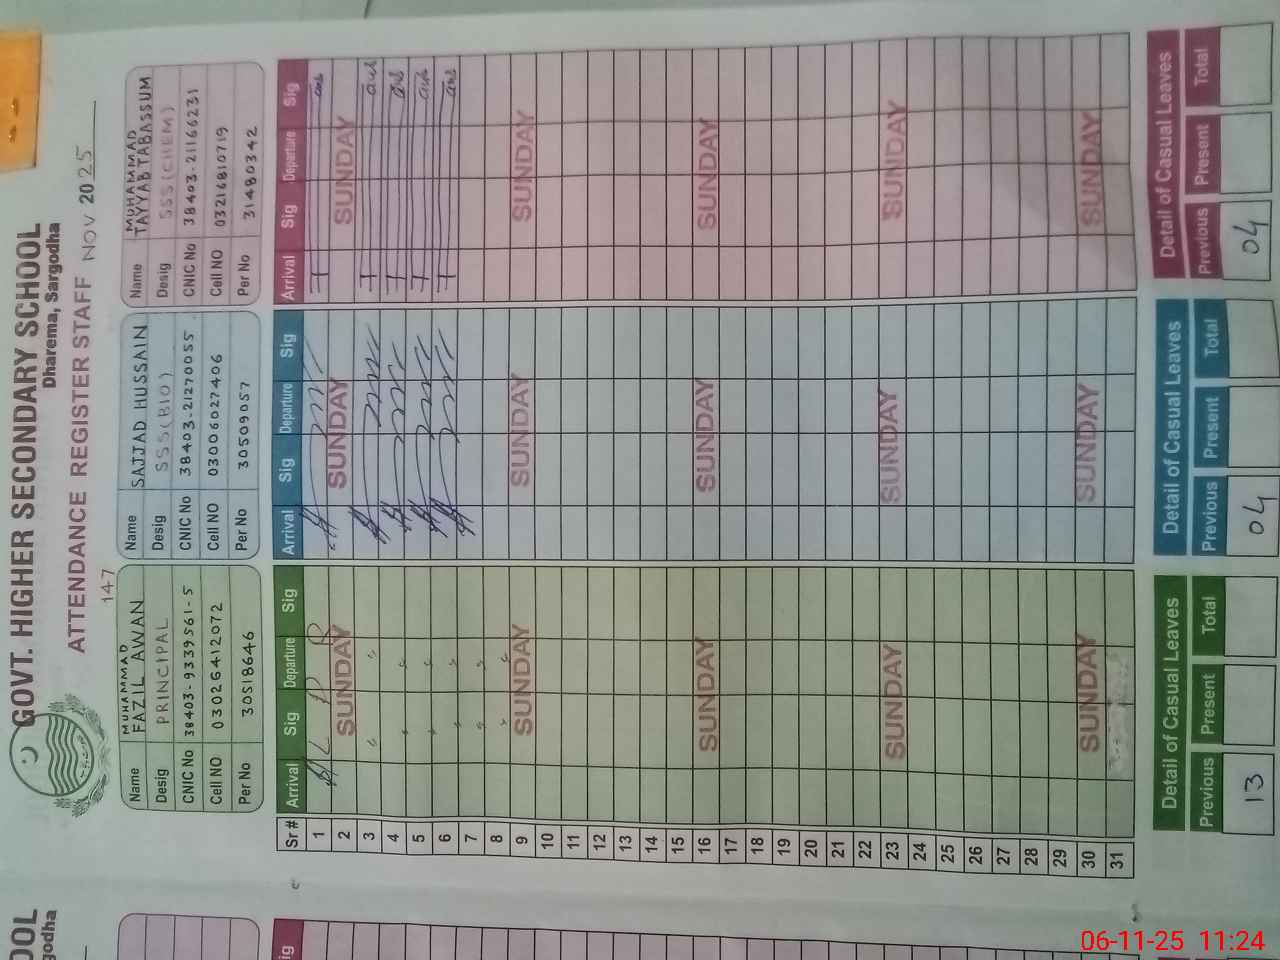 GOVT. HIGHER SECONDARY SCHOOL
Dharema, Sargodha
ATTENDANCE REGISTER STAFF NOV 2025
14-7
Name MUHAMMAD FAZIL AWAN
Desig PRINCIPAL
CNIC No 38403-9339561-5
Cell NO 03026412072
Per No 30518646
Name SAJJAD HUSSAIN
Desig SSS(BIO)
CNIC No 38403-21270055
Cell NO 03006027406
Per No 30509057
Name MUHAMMAD TAYYAB TABASSUM
Desig SSS(CHEM)
CNIC No 38403-21166231
Cell NO 03216810719
Per No 31480342
Sr # Arrival Sig Departure Sig Arrival Sig Departure Sig Arrival Sig Departure Sig
1
2 SUNDAY SUNDAY SUNDAY
3
4
5
6
7
8
9 SUNDAY SUNDAY SUNDAY
10
11
12
13
14
15
16 SUNDAY SUNDAY SUNDAY
17
18
19
20
21
22
23 SUNDAY SUNDAY SUNDAY
24
25
26
27
28
29
30 SUNDAY SUNDAY SUNDAY
31
Detail of Casual Leaves
Previous Present Total
13
Detail of Casual Leaves
Previous Present Total
04
Detail of Casual Leaves
Previous Present Total
04
OOL
godha
ig
06-11-25 11:24